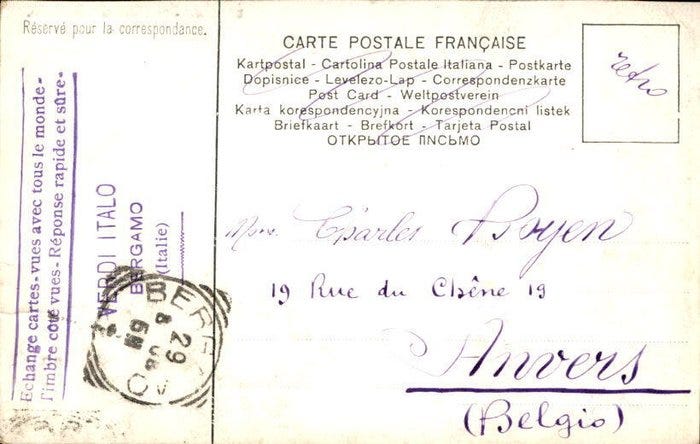 Réservé pour la correspondance.
Echange cartes-vues avec tous le monde-
Timbre coté vues-Réponse rapide et sûre-
VERDI ITALO
BERGAMO
(Italie)
BERGAMO
29
8 08
CARTE POSTALE FRANÇAISE
Kartpostal - Cartolina Postale Italiana - Postkarte
Dopisnice - Levelezo-Lap - Correspondenzkarte
Post Card - Weltpostverein
Karta korespondencyjna - Korespondencni listek
Briefkaart - Brefkort - Tarjeta Postal
ОТКРЫТОЕ ПNСЬМО
retro
Charles Boyen
19 Rue du Chêne 19
Anvers
(Belgio)